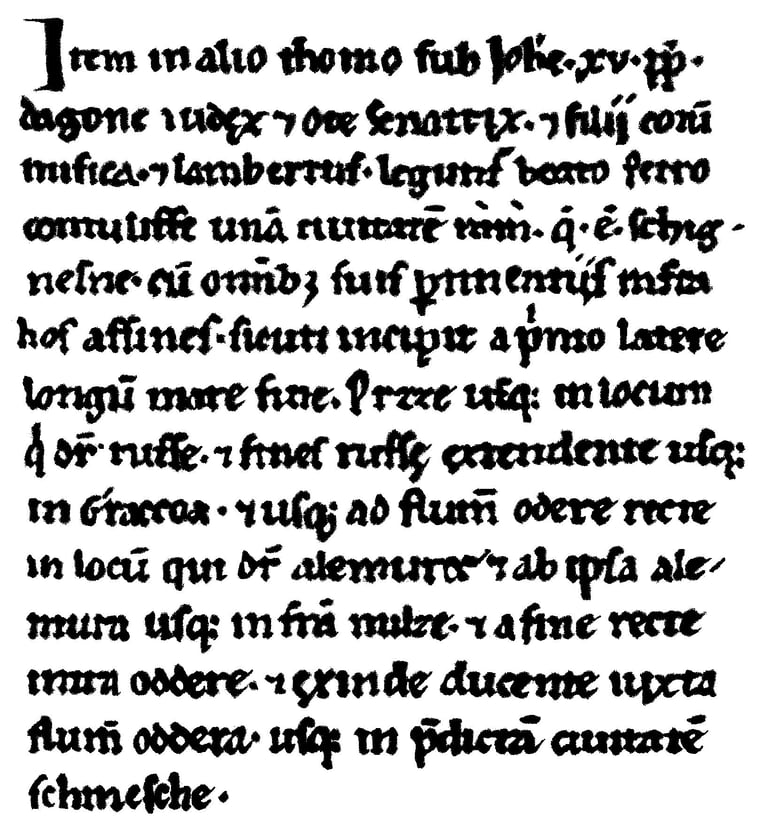 Item in alio thomo sub Johe. xv. pp.
dagone iudęx ⁊ Ote senatrix. ⁊ filii eorū
misica. ⁊ lambertus. legunt beato petro
contulisse unā ciuitatē in. q̄. ē. schig
nesne. cū omīb; suis ptinentiis infra
hos affines. sicuti incipit a pimo latere
longū mare fine. Pruzze usq: in locum
q̄ dr̄ russe. ⁊ fines russę extendente usq:
in Craccoa. ⁊ usq; ad flum̄ odere recte
in locū qui dr̄ alemure ⁊ ab ipsa ale
mura usq: in frā milze. ⁊ a fine recte
intra oddere. ⁊ exinde ducente iuxta
flum̄ oddera. usq: in p̄dictā ciuitatē
schinesche.